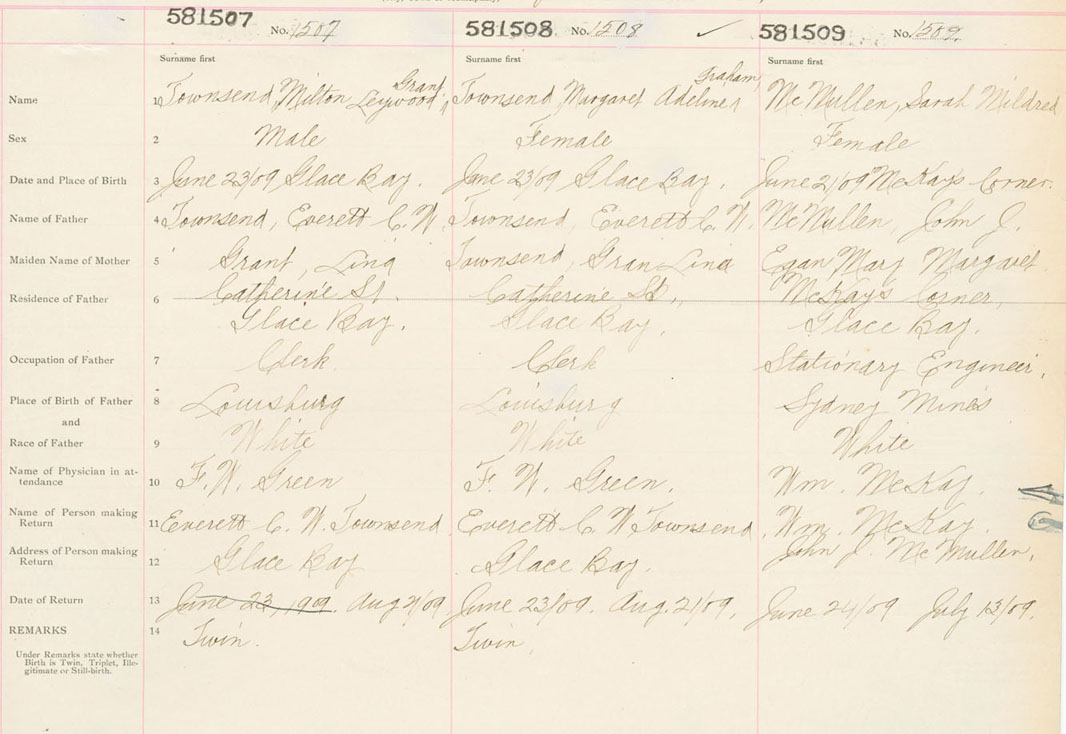 581507 No. 1507 581508 No. 1508 ✓ 581509 No. 1509
Surname first Surname first Surname first
Grant Graham,
Name 1 Townsend, Milton Leywood, Townsend, Margaret Adeline McMullen, Sarah Mildred
Sex 2 Male Female Female
Date and Place of Birth 3 June 23/09 Glace Bay. June 23/09 Glace Bay. June 21/09 McKays Corner.
Name of Father 4 Townsend, Everett C. W. Townsend, Everett C. W. McMullen, John J.
Maiden Name of Mother 5 Grant, Lina Townsend, Gran Lina Egan Mary Margaret
Residence of Father 6 Catherine St. Catherine St., McKays Corner,
Glace Bay. Glace Bay. Glace Bay.
Occupation of Father 7 Clerk Clerk Stationary Engineer.
Place of Birth of Father 8 Louisburg Louisburg Sydney Mines
and
Race of Father 9 White White White
Name of Physician in at-
tendance 10 F. W. Green F. W. Green. Wm. McKay.
Name of Person making
Return 11 Everett C. W. Townsend Everett C. W Townsend Wm. McKay
Address of Person making
Return 12 Glace Bay Glace Bay. John J. McMullen,
Date of Return 13 June 23, 1909. Aug 21/09 June 23/09. Aug. 21/09. June 24/09 July 13/09.
REMARKS 14 Twin. Twin,
Under Remarks state whether
Birth is Twin, Triplet, Ille-
gitimate or Still-birth.